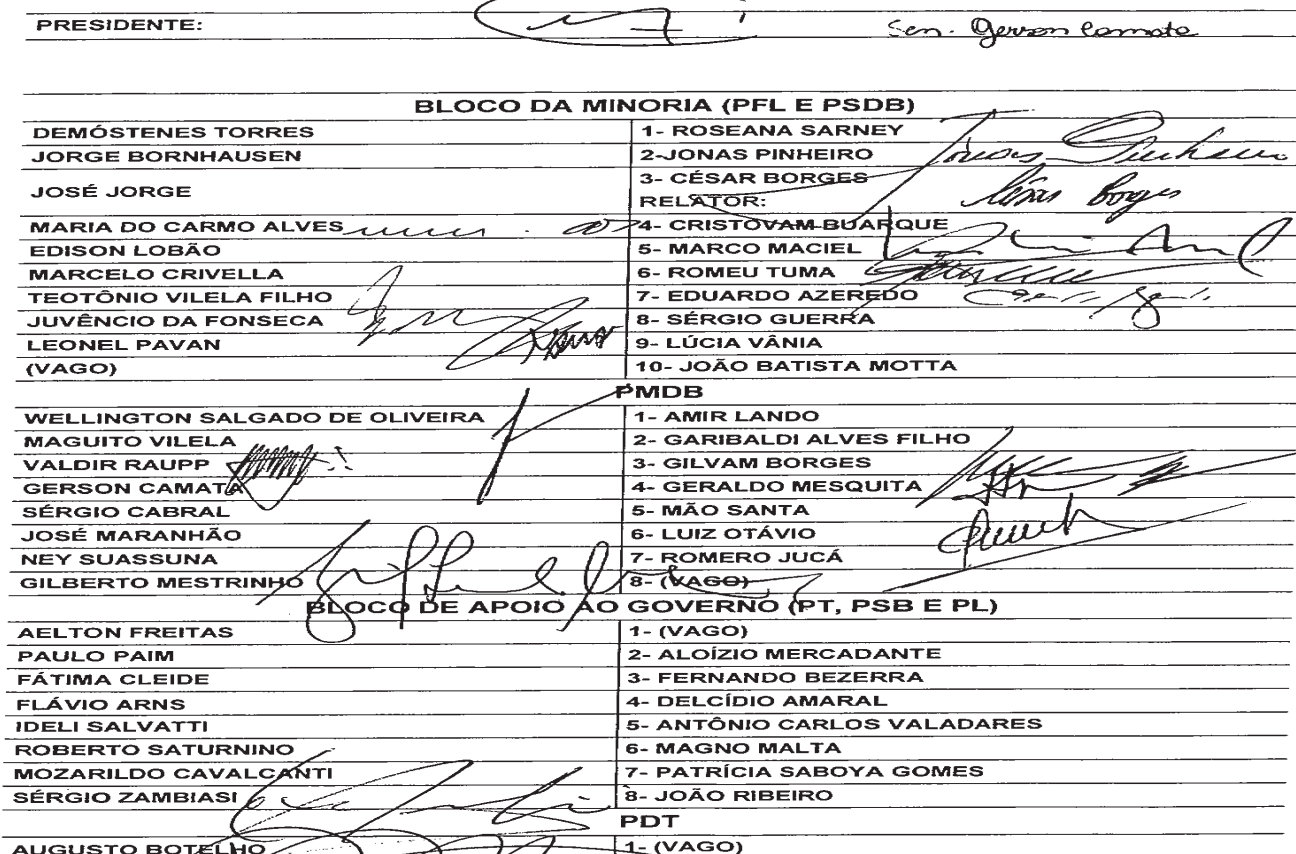 PRESIDENTE: Sen. Gerson Camata
BLOCO DA MINORIA (PFL E PSDB)
DEMÓSTENES TORRES 1- ROSEANA SARNEY
JORGE BORNHAUSEN 2-JONAS PINHEIRO Jonas Pinheiro
JOSÉ JORGE 3- CÉSAR BORGES César Borges
RELATOR:
MARIA DO CARMO ALVES 4- CRISTOVAM BUARQUE
EDISON LOBÃO 5- MARCO MACIEL
MARCELO CRIVELLA 6- ROMEU TUMA
TEOTÔNIO VILELA FILHO 7- EDUARDO AZEREDO
JUVÊNCIO DA FONSECA 8- SÉRGIO GUERRA
LEONEL PAVAN 9- LÚCIA VÂNIA
(VAGO) 10- JOÃO BATISTA MOTTA
PMDB
WELLINGTON SALGADO DE OLIVEIRA 1- AMIR LANDO
MAGUITO VILELA 2- GARIBALDI ALVES FILHO
VALDIR RAUPP 3- GILVAM BORGES
GERSON CAMATA 4- GERALDO MESQUITA
SÉRGIO CABRAL 5- MÃO SANTA
JOSÉ MARANHÃO 6- LUIZ OTÁVIO
NEY SUASSUNA 7- ROMERO JUCÁ
GILBERTO MESTRINHO 8- (VAGO)
BLOCO DE APOIO AO GOVERNO (PT, PSB E PL)
AELTON FREITAS 1- (VAGO)
PAULO PAIM 2- ALOÍZIO MERCADANTE
FÁTIMA CLEIDE 3- FERNANDO BEZERRA
FLÁVIO ARNS 4- DELCÍDIO AMARAL
IDELI SALVATTI 5- ANTÔNIO CARLOS VALADARES
ROBERTO SATURNINO 6- MAGNO MALTA
MOZARILDO CAVALCANTI 7- PATRÍCIA SABOYA GOMES
SÉRGIO ZAMBIASI 8- JOÃO RIBEIRO
PDT
AUGUSTO BOTELHO 1- (VAGO)